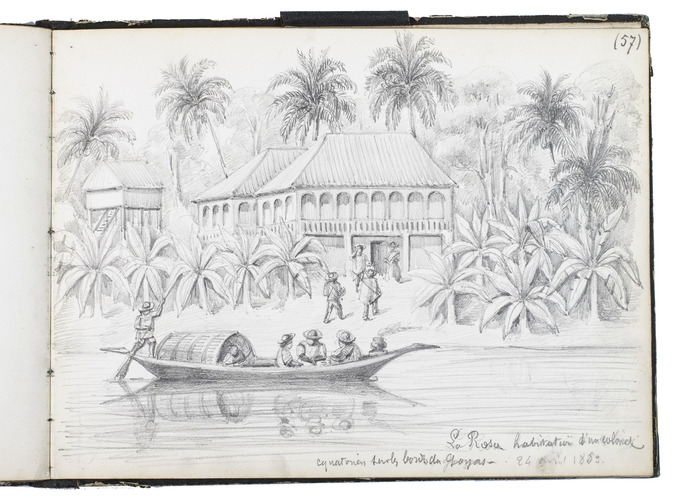 (57)
La Rosa habitation d'un colonel
equatorien sur les bords du Guayas - 24 avril 1883.